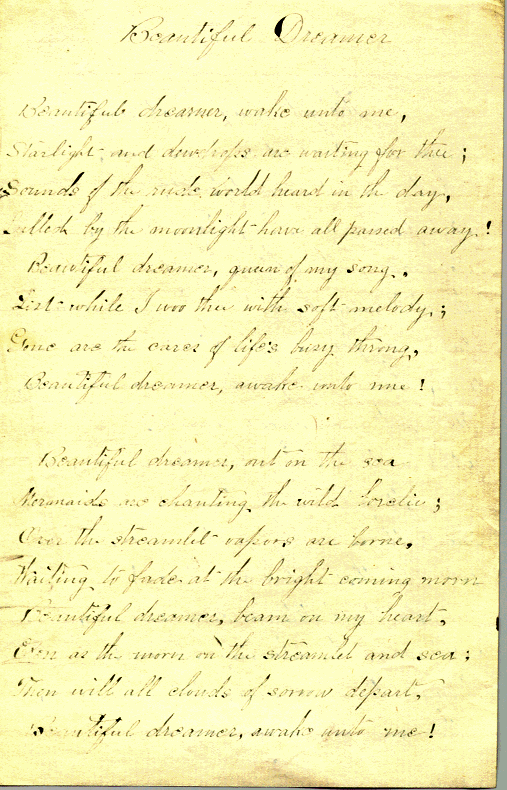 Beautiful Dreamer
Beautiful dreamer, wake unto me,
Starlight and dewdrops are waiting for thee;
Sounds of the rude world heard in the day,
Lulled by the moonlight have all passed away!
Beautiful dreamer, queen of my song,
List while I woo thee with soft melody;
Gone are the cares of life's busy throng,
Beautiful dreamer, awake unto me!
Beautiful dreamer, out on the sea
Mermaids are chanting the wild lorelie;
Over the streamlet vapors are borne,
Waiting to fade at the bright coming morn
Beautiful dreamer, beam on my heart,
Even as the morn on the streamlet and sea;
Then will all clouds of sorrow depart,
Beautiful dreamer, awake unto me!